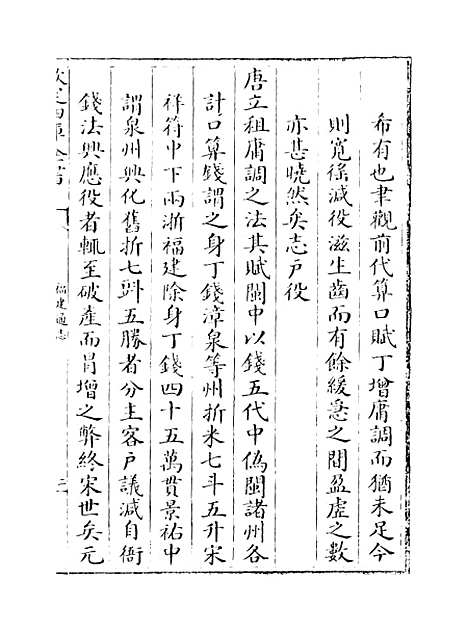 希有也聿觀前代算口賦丁增庸調而猶未足今
則寬徭減役滋生齒而有餘緩急之間盈虛之數
亦甚曉然矣志戶役
唐立租庸調之法其賦閩中以錢五代中偽閩諸州各
計口算錢謂之身丁錢漳泉等州折米七斗五升宋
祥符中下兩浙福建除身丁錢四十五萬貫景祐中
謂泉州興化舊折七㪷五勝者分主客戶議減自衙
錢法興應役者輒至破產而冐增之弊終宋世矣元
欽定四庫全書
福建通志
三